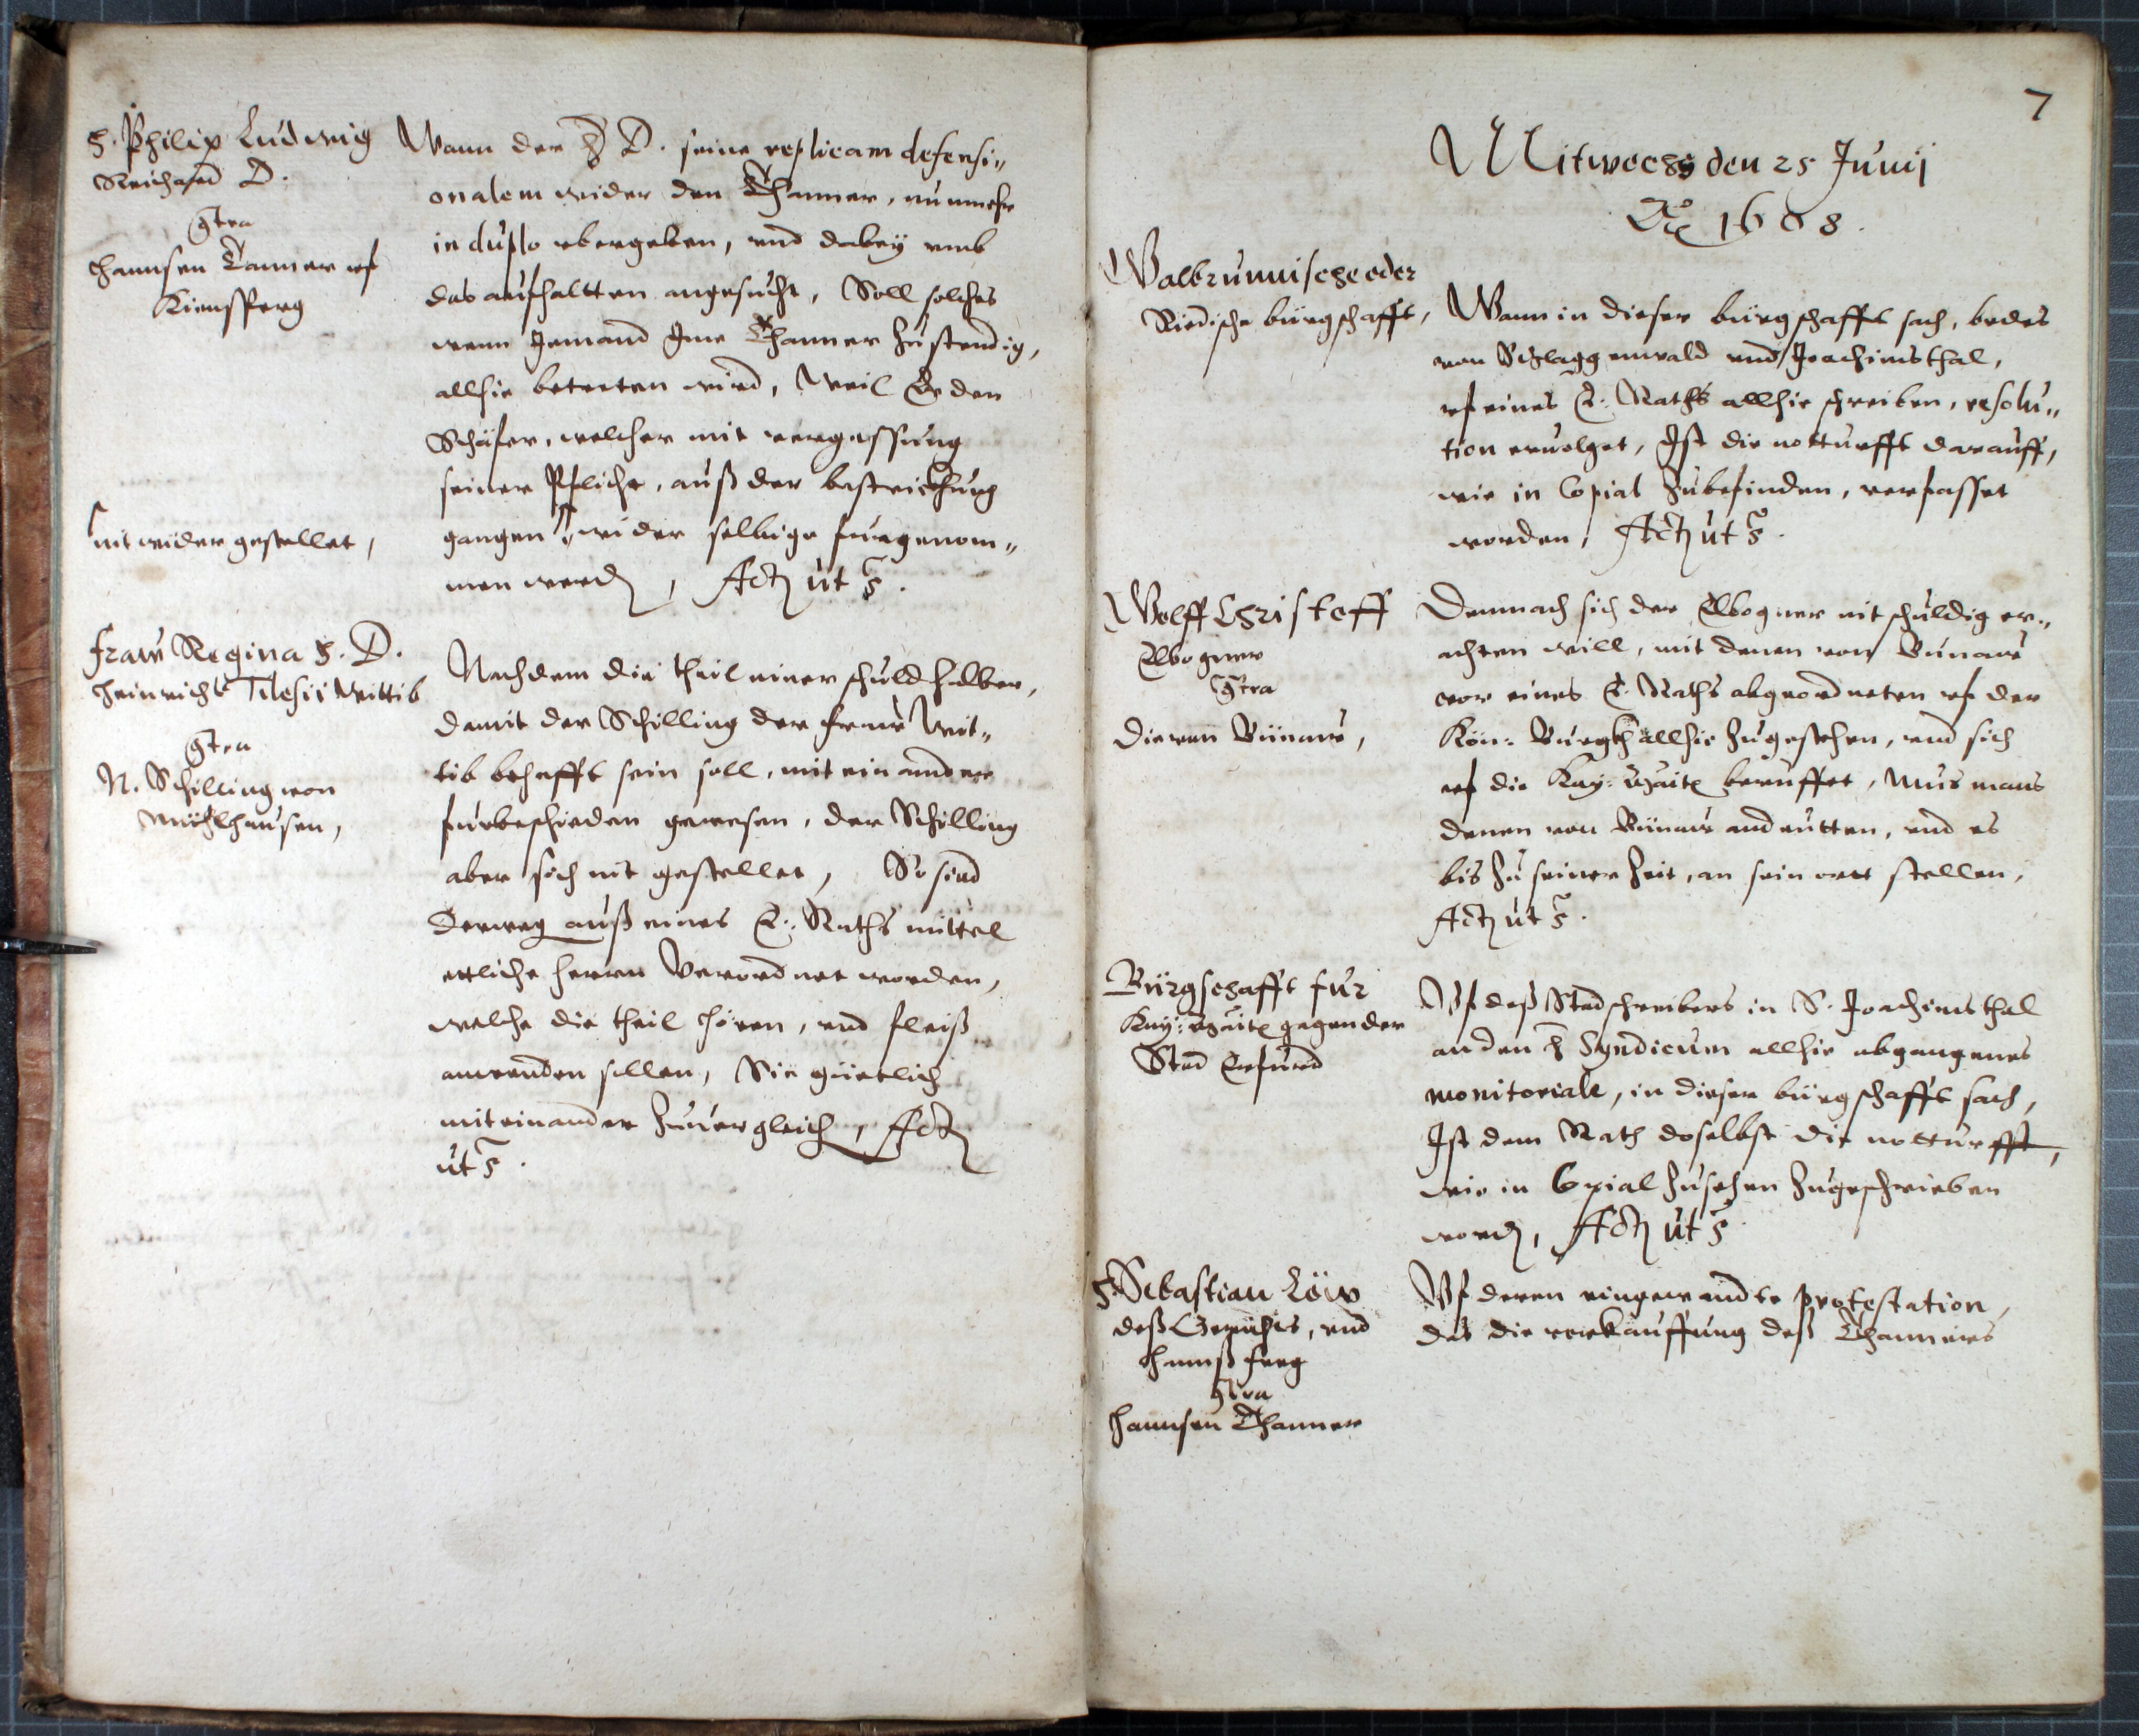 H. Philip Ludwig
Reichard D.
Contra
Hannsen Tanner uf
Kinsperg
Wann der H D. seine replicam defensi¬
onalem wider den Thanner, nunmehr
in duplo ubergeben, und dabey umb
das aufhaltten angesucht, Soll solches
wenn Jemand Ime Thanner zustendig,
allhie betretten wird, weil Er den
Schäfer, welcher mit vergessung
seiner Pflicht, auß der bestrickhung
gangen wider selbige furgenom¬
men werden, Actum ut supra.
nit wider gestellet,
Fraw Regina H. D.
Heinrichs Tilesii Wittib
Contra
N. Schilling von
Mühlhausen,
Nachdem die theil einer schuld halber,
damit der Schilling der Fraw Wit¬
tib behafft sein soll, mit einander
furbeschieden gewesen, der Schilling
aber sich nit gestellet, So sind
derweg auß eines E. Raths mittel
ettliche Herrn Verordnet worden,
welche die theil hören, und fleiß
anwenden sollen, Sie güetlich
miteinander zuvergleichen, Actum
ut supra.
7
Mitwochs den 25 Junij
Ao 1608.
Walbrunnische oder
Riedische bürgschafft,
Wann in dieser bürgschafft sach, bedes
von Schlaggenwald und Joachimsthal,
uf eines E. Raths allhie schreiben, resolu¬
tion ervolget, Ist die notturfft darauff,
wie in Copial zubefinden, verfasset
worden, Actum ut supra.
Wolff Christoff
Elbogner
Contra
Die von Bünaw,
Demnach sich der Elbogner nit schuldig er¬
achten will, mit denen von Bunaw
vor eines E. Raths abgeordneten uf der
Kön: Burgkh allhie zugestehen, und sich
uf die Kay: Maÿt beruffet, Mus mans
denen von Bünaw andeutten, und es
bis zu seiner Zeit, an sein ortt stellen,
Actum ut supra.
Bürgschafft fur
Kay: Maÿt gegen der
Stad Erfurd
Uf deß Stadschreibers in S. Joachimsthal
an den H Syndicum allhie abgangenes
monitoriale, in dieser bürgschafft sach,
Ist dem Rath doselbst die notturfft,
wie in Copial zusehen zugeschrieben
worden, Actum ut supra
H. Sebastian Löw
deß Gerichts, und
Hannß
Contra
Hannsen Thanner
Uf deren eingewandte protestation,
das die verkauffung deß Thanners